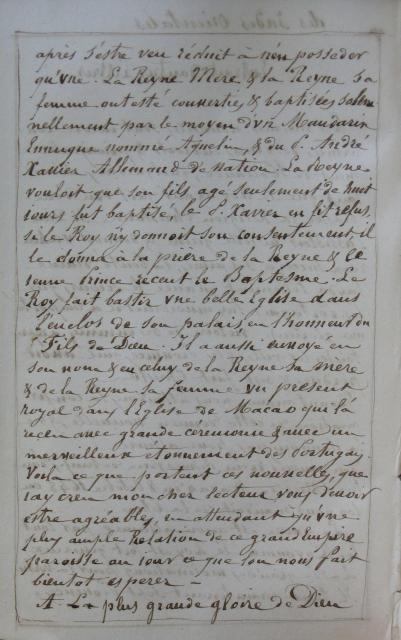 après s'estre veu réduit à n'en posseder
qu'vne. La Reyne Mere & la Reyne sa
femme ont esté conuerties, & baptisées solem
nellement par le moyen d'vn Mandarin
Ennuque nommé Aquelin, & du P. André
Xavier Allemand de nation. La Reyne
vouloit que son fils, agé seulement de huit
iours fut baptisé, le P. Xavier en fit refus,
si le Roy n'y donnoit son consentement, il
le donna à la prière de la Reyne & le
ieune Prince receut le Baptesme. Le
Roy fait bastir vne belle Eglise dans
l'enclos de son palais, en l'honneur du
Fils de Dieu. Il a aussi enuoyé en
son nom & en celuy de la Reyne sa mère
& de la Reyne sa femme vn présent
royal dans l'Eglise de Macao qui l'a
receu auec grande céremonie & auec un
merveilleux étonnement des Portugays.
Voila ce que portent ces nouvelles, que
i'ay creu mon cher lecteur vous deuoir
estre agréables, en attendant qu'vne
plus ample Rélation de ce grand Empire
paroisse au iour ce que l'on nous fait
bientot esperer —
A La plus grande gloire de Dieu